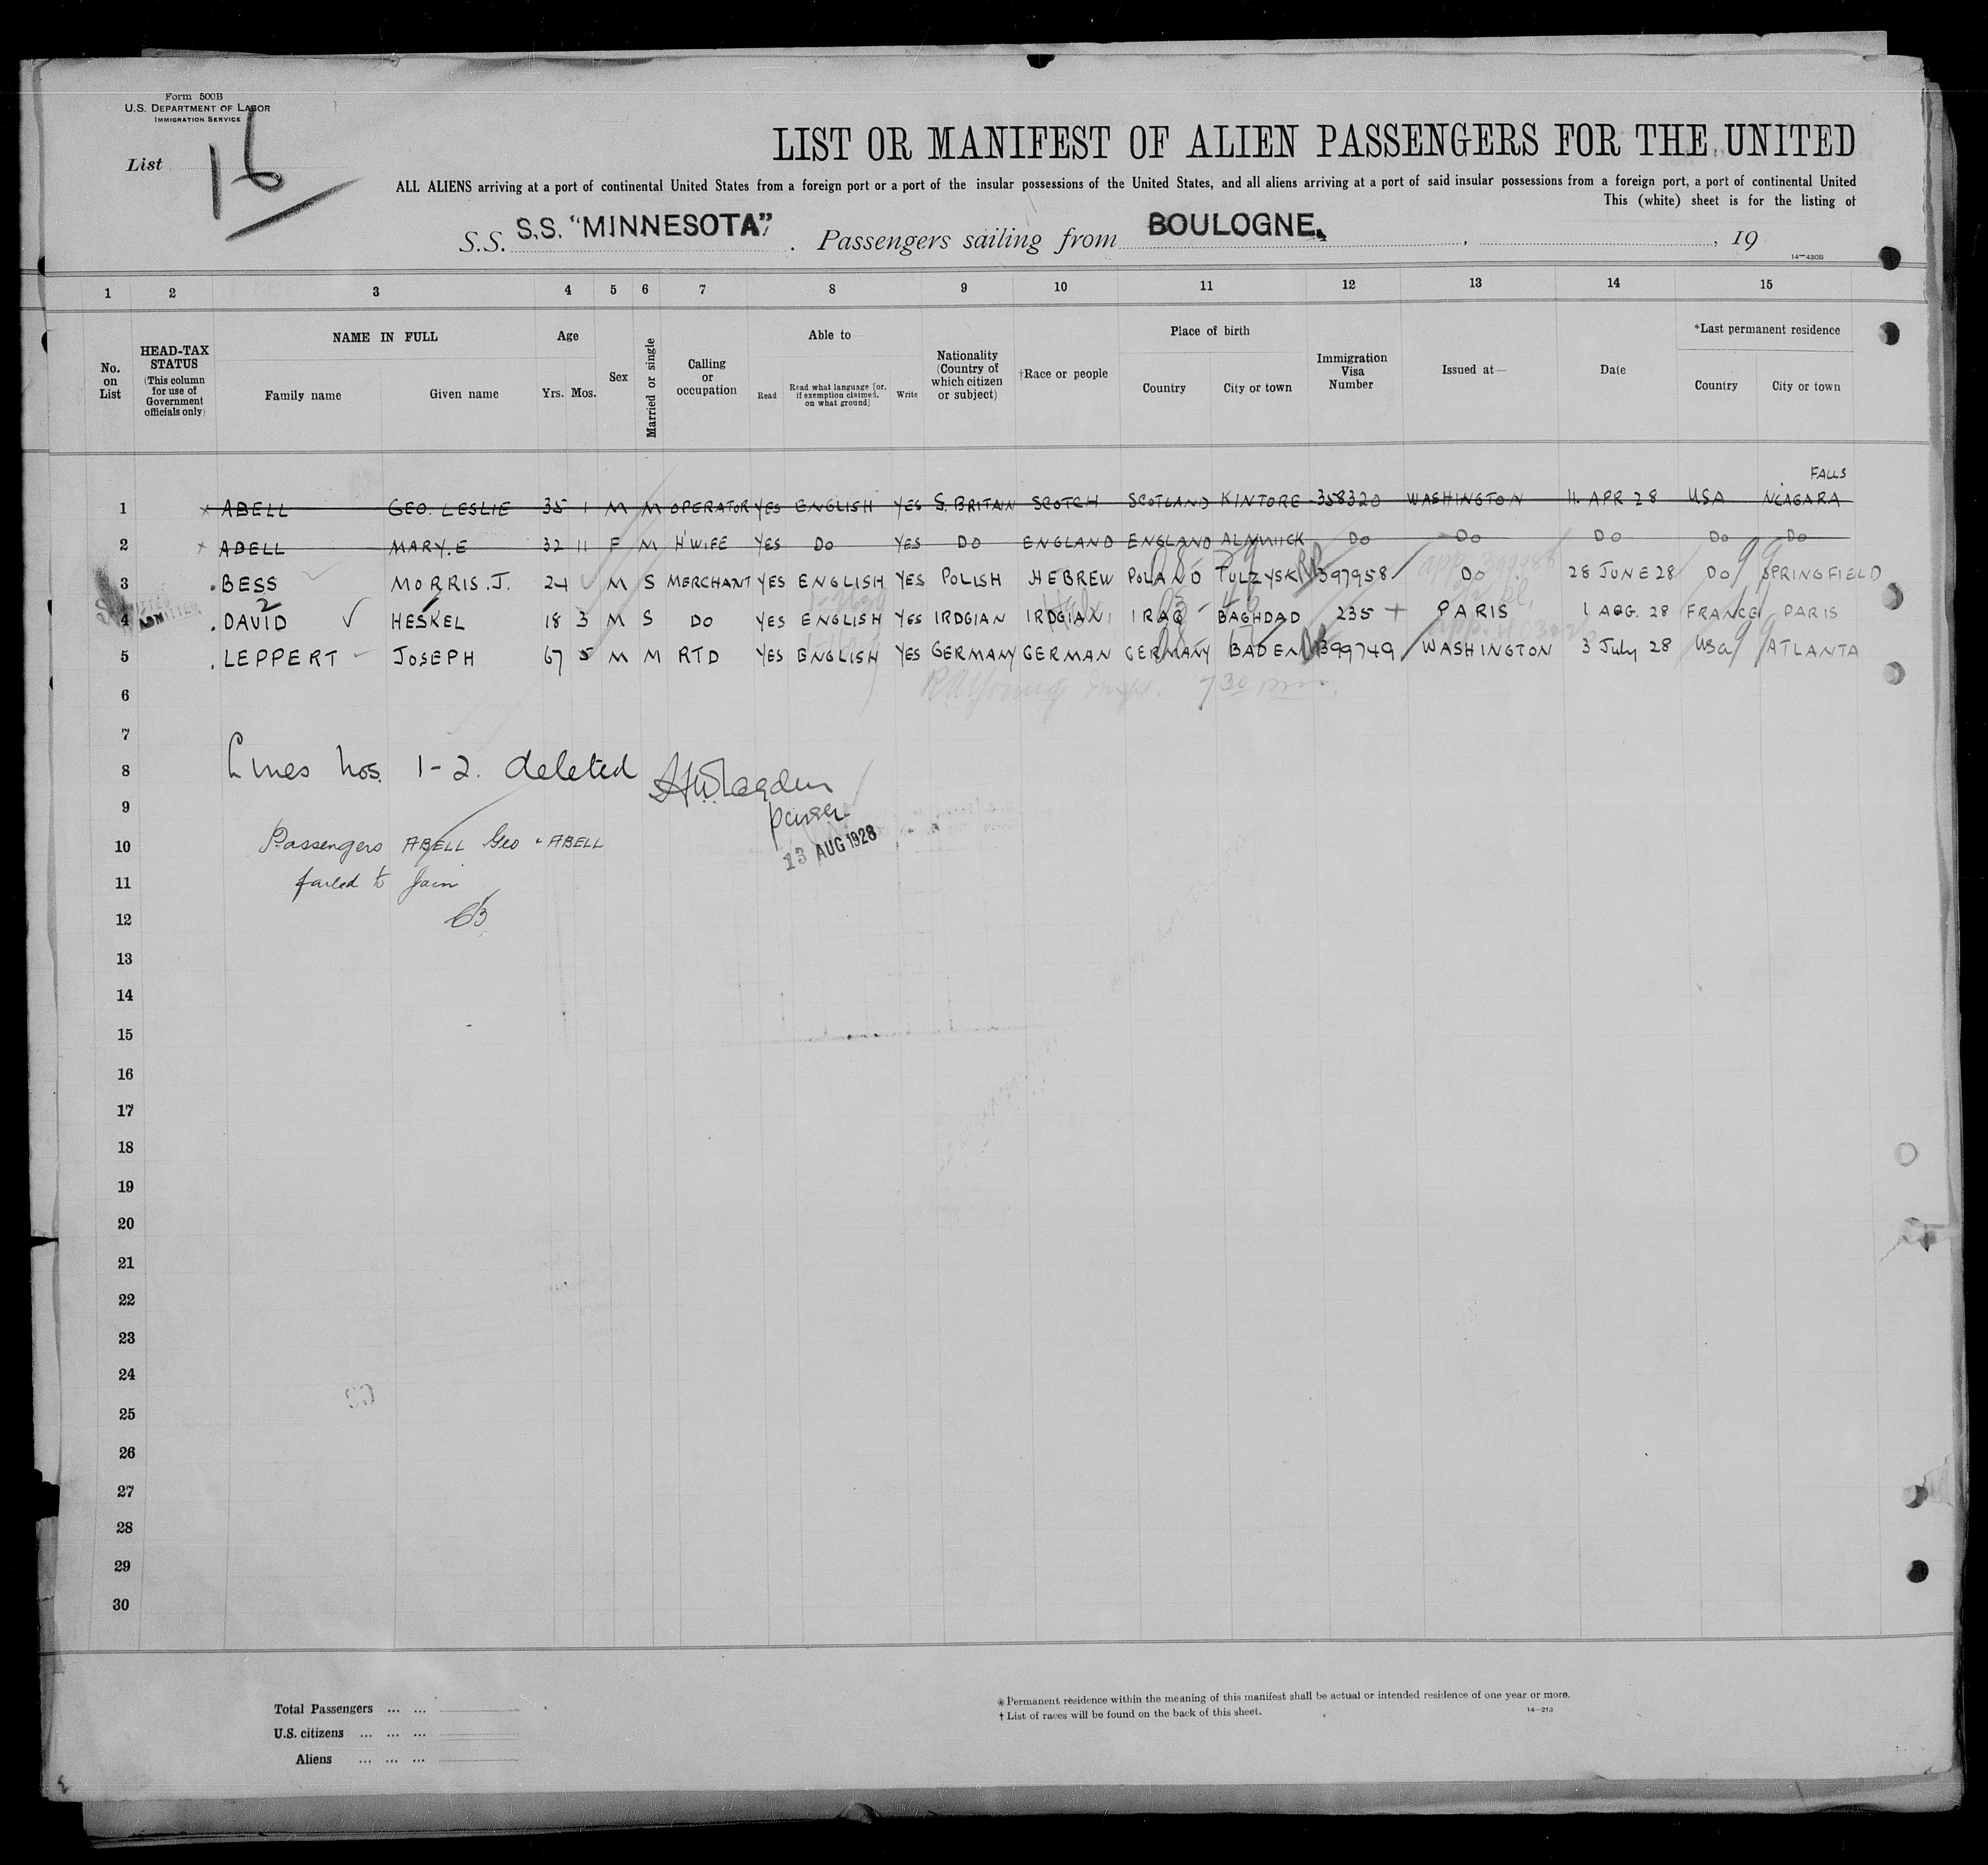 Form 500B
U.S. DEPARTMENT OF LABOR
IMMIGRATION SERVICE
List 16
LIST OR MANIFEST OF ALIEN PASSENGERS FOR THE UNITED
ALL ALIENS arriving at a port of continental United States from a foreign port or a port of the insular possessions of the United States, and all aliens arriving at a port of said insular possessions from a foreign port, a port of continental United
This (white) sheet is for the listing of
S.S. S.S. "MINNESOTA". Passengers sailing from BOULOGNE. , , 19
14-430B
1 2 3 4 5 6 7 8 9 10 11 12 13 14 15
No. on List
HEAD-TAX STATUS (This column for use of Government officials only)
NAME IN FULL
Family name Given name
Age
Yrs. Mos.
Sex
Married or single
Calling or occupation
Able to
Read Read what language [or, if exemption claimed, on what ground] Write
Nationality (Country of which citizen or subject)
†Race or people
Place of birth
Country City or town
Immigration Visa Number
Issued at—
Date
*Last permanent residence
Country City or town
FALLS
1 ABELL GEO. LESLIE 35 1 M M OPERATOR YES ENGLISH YES S. BRITAIN SCOTCH SCOTLAND KINTORE 358320 WASHINGTON 11. APR 28 USA NIAGARA
2 ABELL MARY.E 32 11 F M H'WIFE YES DO YES DO ENGLAND ENGLAND ALNWICK DO DO DO DO DO
3 BESS MORRIS.J. 24 M S MERCHANT YES ENGLISH YES POLISH HEBREW POLAND 397958 DO 28 JUNE 28 DO SPRINGFIELD
2
ADMITTED
4 DAVID HESKEL 18 3 M S DO YES ENGLISH YES IRDGIAN IRDGIAN IRAQ BAGHDAD 235 + PARIS 1 AGG. 28 FRANCE PARIS
5 LEPPERT JOSEPH 67 5 M M RTD YES ENGLISH YES GERMANY GERMAN GERMANY BADEN 399749 WASHINGTON 3 July 28 USA ATLANTA
6 7 30 pm.
7
8 Lines nos. 1-2. deleted
9 purser
13 AUG 1928
10 Passengers ABELL Geo + ABELL
11 failed to join
12
13
14
15
16
17
18
19
20
21
22
23
24
25
26
27
28
29
30
Total Passengers ... ...
U.S. citizens ... ... ...
Aliens ... ... ...
* Permanent residence within the meaning of this manifest shall be actual or intended residence of one year or more.
† List of races will be found on the back of this sheet.
14-213